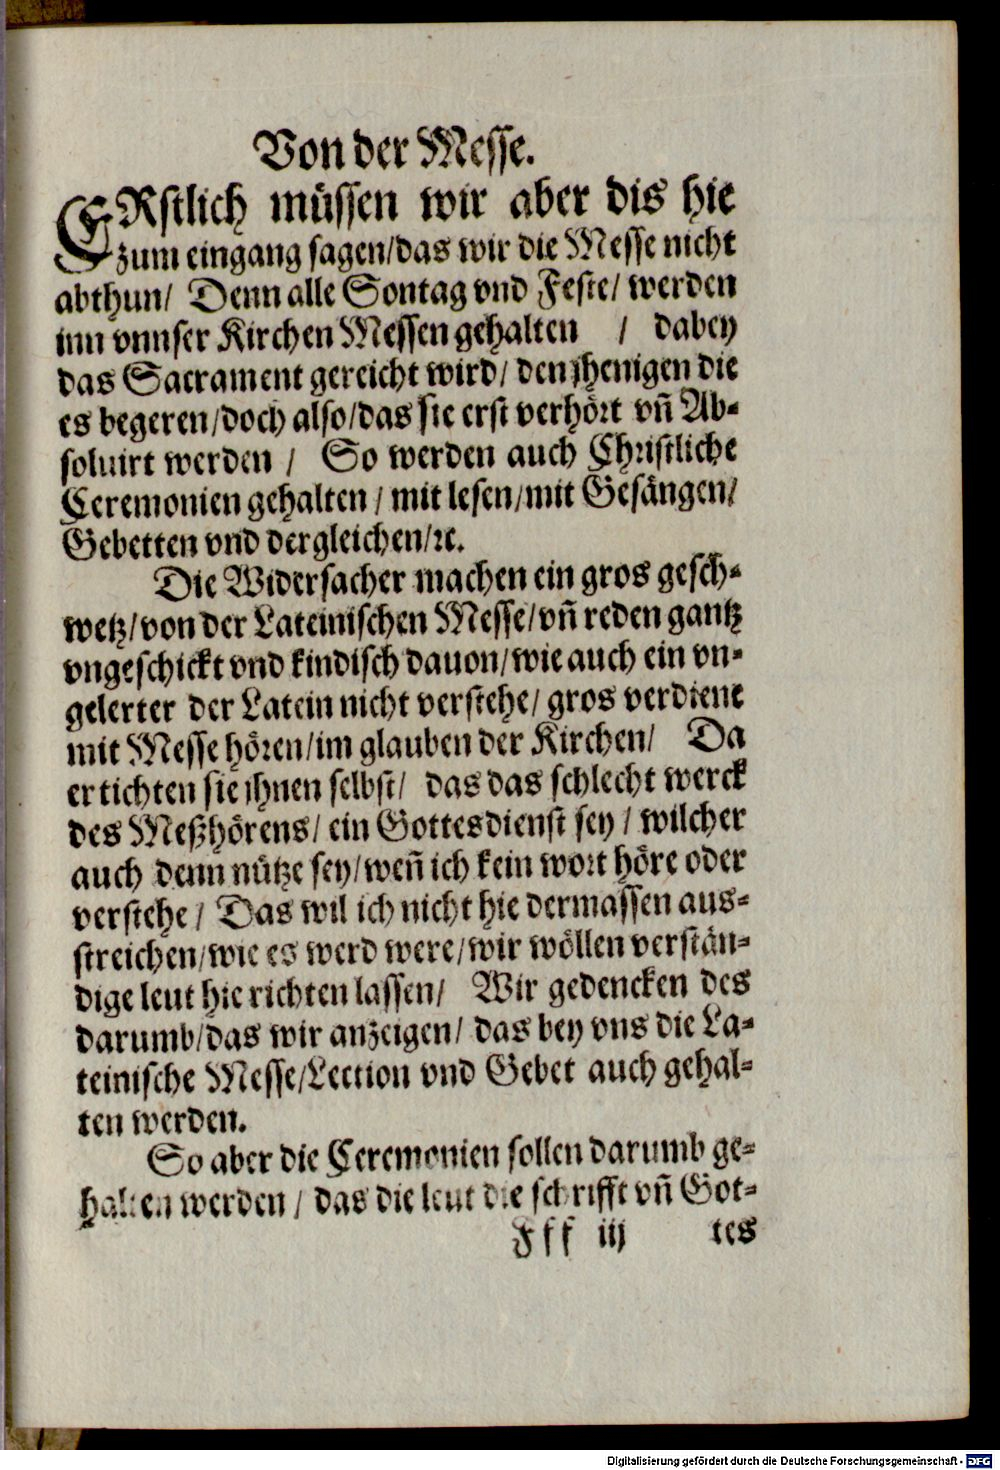 Von der Messe.
ERstlich müssen wir aber dis hie
zum eingang sagen/das wir die Messe nicht
abthun/ Denn alle Sontag vnd Feste/ werden
inn vnnser Kirchen Messen gehalten / dabey
das Sacrament gereicht wird/ den jhenigen die
es begeren/doch also/das sie erst verhört vn̄ Ab-
soluirt werden / So werden auch Christliche
Ceremonien gehalten / mit lesen/mit Gesängen/
Gebetten vnd dergleichen/ꝛc.
Die Widersacher machen ein gros gesch-
wetz/von der Lateinischen Messe/vn̄ reden gantz
vngeschickt vnd kindisch dauon/wie auch ein vn-
gelerter der Latein nicht verstehe/ gros verdiene
mit Messe hören/im glauben der Kirchen/ Da
ertichten sie jhnen selbst/ das das schlecht werck
des Meßhörens/ ein Gottesdienst sey / wilcher
auch denn nütze sey/wen̄ ich kein wort höre oder
verstehe / Das wil ich nicht hie dermassen aus-
streichen/wie es werd were/wir wöllen verstän-
dige leut hie richten lassen/ Wir gedencken des
darumb/das wir anzeigen/ das bey vns die La-
teinische Messe/Lection vnd Gebet auch gehal-
ten werden.
So aber die Ceremonien sollen darumb ge-
halten werden / das die leut die schrifft vn̄ Got-
Fff iij tes
Digitalisierung gefördert durch die Deutsche Forschungsgemeinschaft - DFG